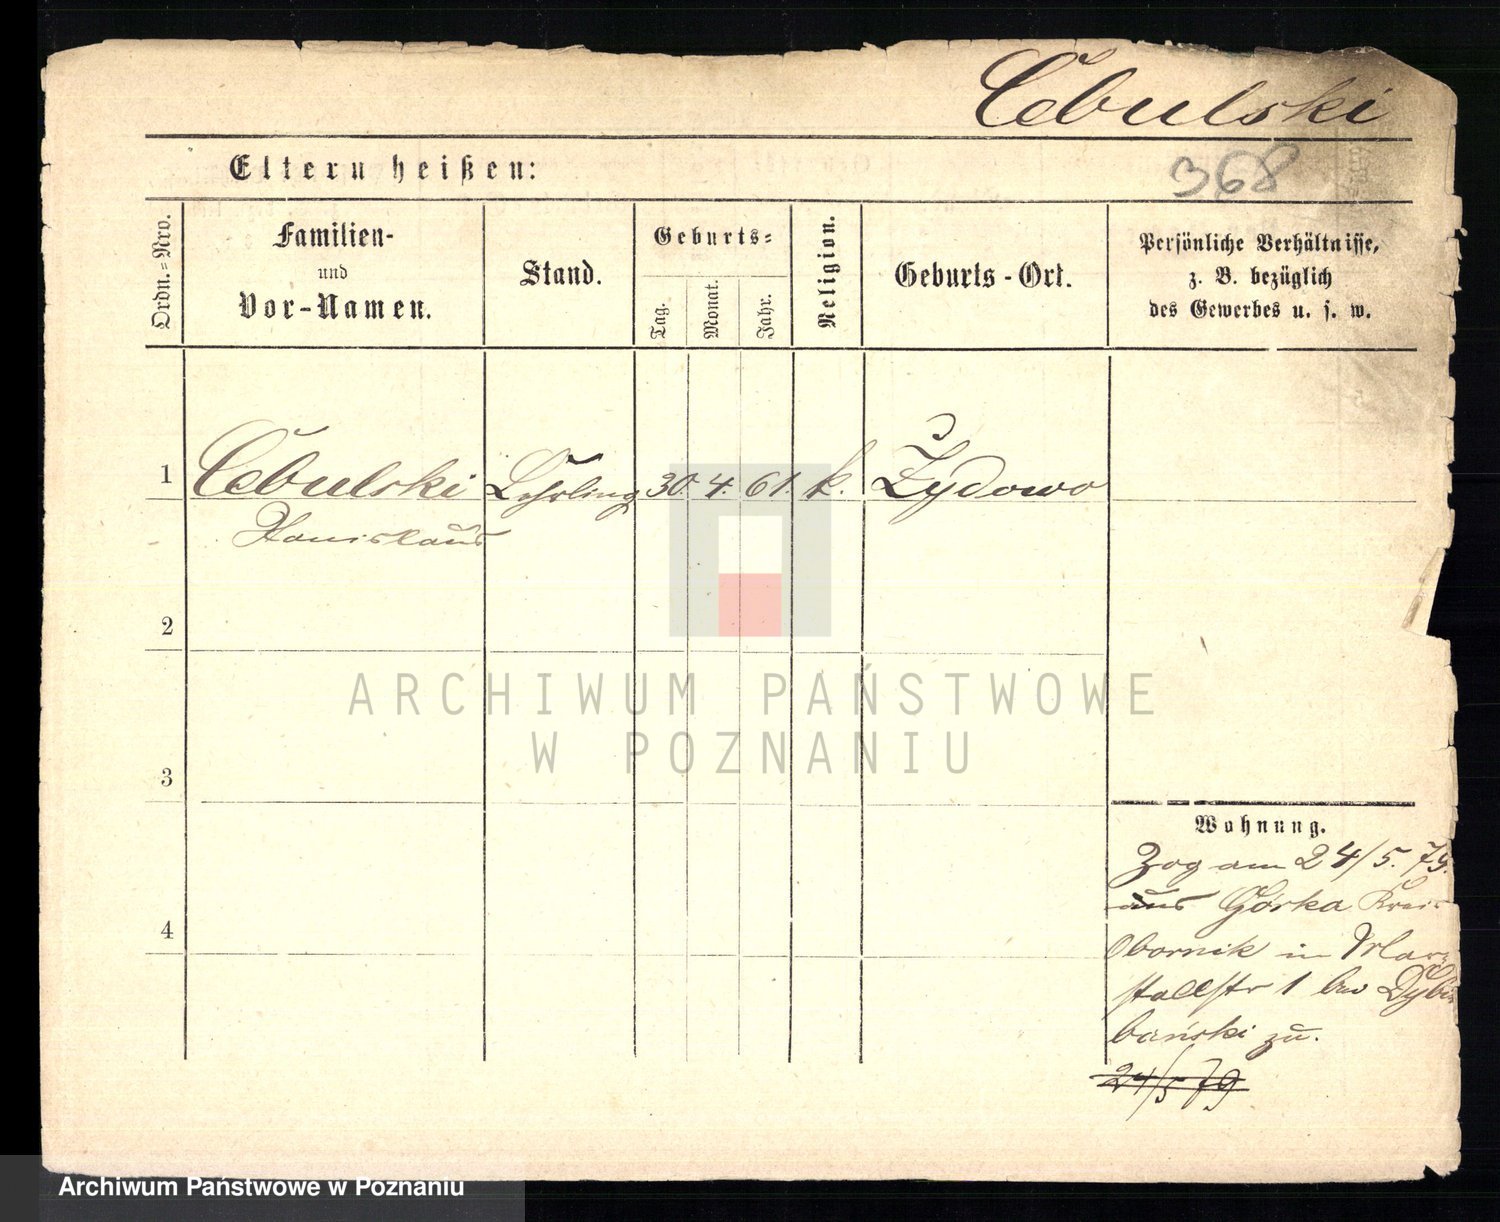 Cebulski
Eltern heißen:
368
Ordn.=Nro.
Familien-
und
Vor-Namen.
Stand.
Geburts=
Tag.
Monat.
Jahr.
Religion.
Geburts-Ort.
Persönliche Verhältnisse,
z. B. bezüglich
des Gewerbes u. s. w.
1
Cebulski Lehrling 30. 4. 61. k. Żydowo
Stanislaus
2
3
4
Wohnung.
Zog am 24/5. 79.
aus Górka Kreis
Obornik in Mar-
stallstr 1 bei
bański zu.
24/5 79
ARCHIWUM PAŃSTWOWE
W POZNANIU
Archiwum Państwowe w Poznaniu